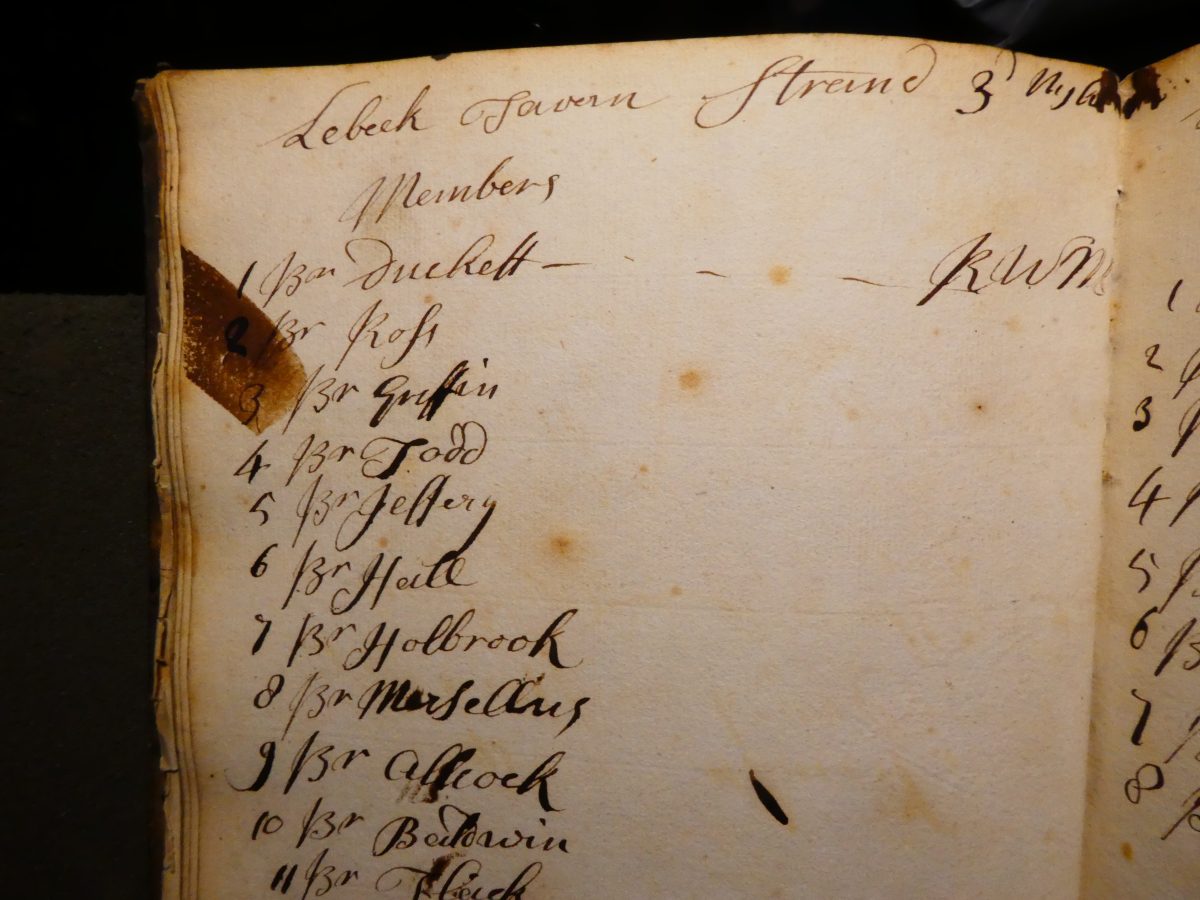 Lebeck Tavern Strand 3d
Members
1 Br Duckett - - - - RWM
2 Br Ross
3 Br Griffin
4 Br Todd
5 Br Jeffery
6 Br
7 Br Holbrook
8 Br Mersellus
9 Br Allcock
10 Br Baldwin
11 Br
1
2
3
4
5
6
7
8